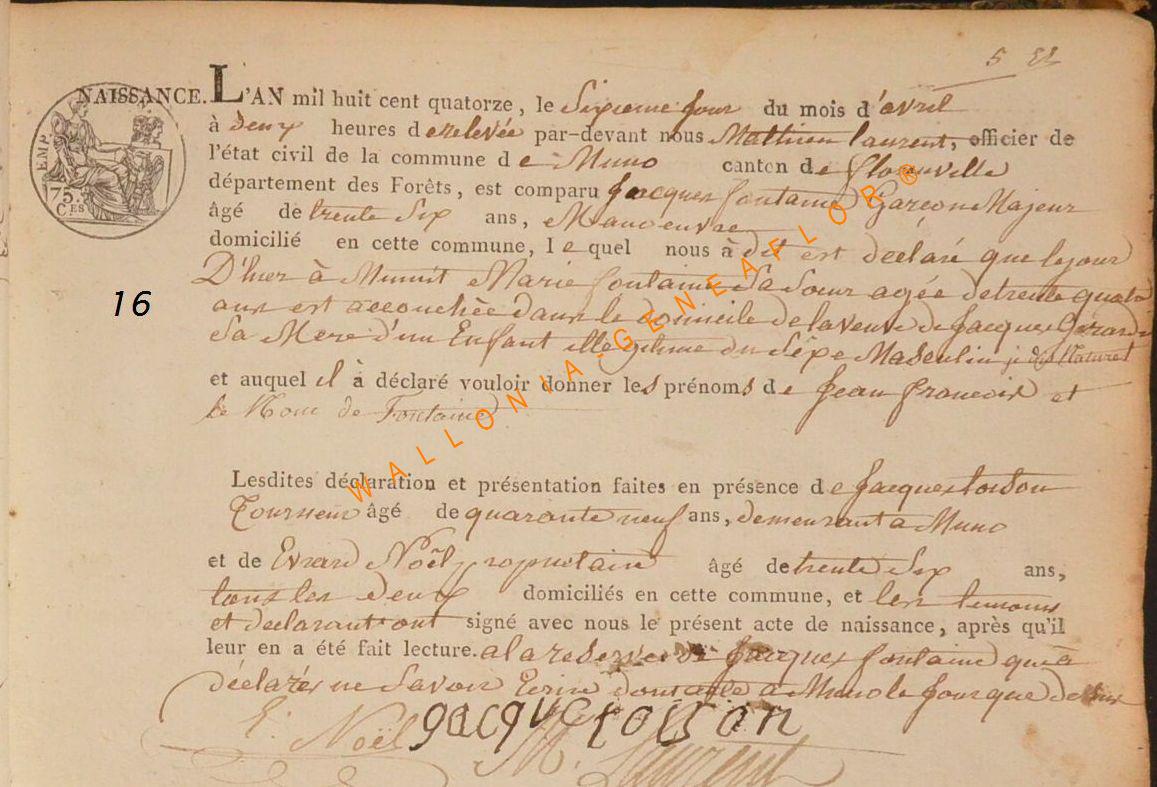 5
NAISSANCE. L'AN mil huit cent quatorze, le Sixieme Jour du mois d'avril
à Deux heures de relevée par-devant nous Mathieu Laurent, officier de
l'état civil de la commune de Muno canton de florenville
département des Forêts, est comparu Jacques fontaine Garçon Majeur
âgé de trente Six ans, Manoeuvre
domicilié en cette commune, lequel nous à dit est declaré que le jour
D'hier à Minuit Marie fontaine Sa Soeur agée de trente quatre
ans est accouchée dans le domicile de la veuve de Jacques Gerard
Sa Mere d'un Enfant illegitime du Sexe Masculin
16
et auquel il à déclaré vouloir donner les prénoms de Jean francois et
le Nom de Fontaine
Lesdites déclaration et présentation faites en présence de Jacques tosson
Tourneur âgé de quarante neuf ans, demeurant a Muno
et de Evrard Noël propriotaire âgé de trente Six ans,
tous les deux domiciliés en cette commune, et les temoins
et declarant ont signé avec nous le présent acte de naissance, après qu'il
leur en a été fait lecture. a la reserve de Jacques fontaine qui à
déclarés ne Savoir Ecrire dont acte a Muno le Jour que dessus
E. Noël Jacque tosson
M. Laurent
TEMP.
75.
CES
WALLONIA-GENEAFLOR®